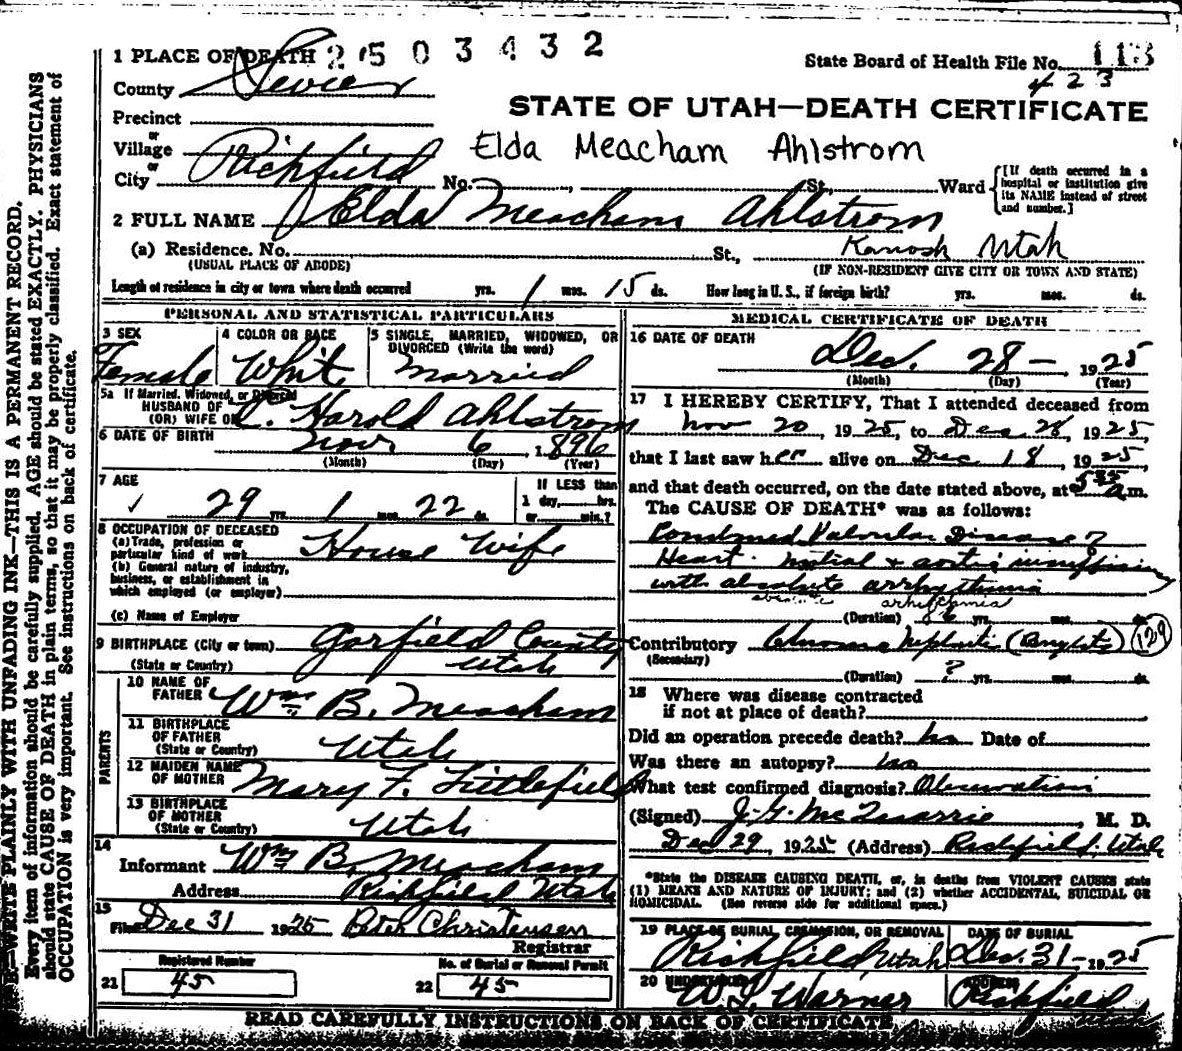 1 PLACE OF DEATH 2503432
State Board of Health File No. 113
423
County Sevier
STATE OF UTAH—DEATH CERTIFICATE
Precinct
or
Village
Elda Meacham Ahlstrom
or
City Richfield No. , St., Ward
[If death occurred in a hospital or institution give its NAME instead of street and number.]
2 FULL NAME Elda Meacham Ahlstrom
(a) Residence. No. St., Kanosh Utah
(USUAL PLACE OF ABODE) (IF NON-RESIDENT GIVE CITY OR TOWN AND STATE)
Length of residence in city or town where death occurred yrs. 1 mos. 15 ds. How long in U. S., if foreign birth? yrs. mos. ds.
PERSONAL AND STATISTICAL PARTICULARS
3 SEX
Female
4 COLOR OR RACE
White
5 SINGLE, MARRIED, WIDOWED, OR DIVORCED (Write the word)
Married
5a If Married, Widowed, or Divorced
HUSBAND OF
(OR) WIFE OF C. Harold Ahlstrom
6 DATE OF BIRTH Nov. 6 1896
(Month) (Day) (Year)
7 AGE
29 yrs. 1 mos. 22 ds.
If LESS than
1 day, hrs.
or min.?
8 OCCUPATION OF DECEASED
(a) Trade, profession or particular kind of work House Wife
(b) General nature of industry, business, or establishment in which employed (or employer)
(c) Name of Employer
9 BIRTHPLACE (City or town) Garfield County
(State or Country) Utah
PARENTS
10 NAME OF FATHER Wm B. Meacham
11 BIRTHPLACE OF FATHER
(State or Country) Utah
12 MAIDEN NAME OF MOTHER Mary F. Littlefield
13 BIRTHPLACE OF MOTHER
(State or Country) Utah
14
Informant Wm B. Meacham
Address Richfield Utah
15
Filed Dec 31 1925 Peter Christensen
Registrar
Registered Number
21 45
No. of Burial or Removal Permit
22 45
MEDICAL CERTIFICATE OF DEATH
16 DATE OF DEATH
Dec. 28 – 1925
(Month) (Day) (Year)
17 I HEREBY CERTIFY, That I attended deceased from
Nov 20, 1925, to Dec 28, 1925,
that I last saw her alive on Dec 18, 1925
and that death occurred, on the date stated above, at 535 a m.
The CAUSE OF DEATH* was as follows:
Valvular Disease
Heart. mitral + aortic insufficiency
with absolute arrhythmia
absolute arhythmia
(Duration) yrs. mos. ds.
Contributory Chronic Nephritis (Brights) 129
(Secondary)
(Duration) ? yrs. mos. ds.
18 Where was disease contracted
if not at place of death?
Did an operation precede death? No Date of
Was there an autopsy? No
What test confirmed diagnosis? Observation
(Signed) J. G. McQuarrie, M. D.
Dec 29, 1925 (Address) Richfield, Utah
*State the DISEASE CAUSING DEATH, or, in deaths from VIOLENT CAUSES state
(1) MEANS AND NATURE OF INJURY; and (2) whether ACCIDENTAL, SUICIDAL OR
HOMICIDAL. (See reverse side for additional space.)
19 PLACE OF BURIAL, CREMATION, OR REMOVAL
Richfield Utah
DATE OF BURIAL
Dec. 31 – 1925
20 UNDERTAKER
Warner
ADDRESS
Richfield Utah
READ CAREFULLY INSTRUCTIONS ON BACK OF CERTIFICATE
WRITE PLAINLY WITH UNFADING INK—THIS IS A PERMANENT RECORD.
Every item of information should be carefully supplied. AGE should be stated EXACTLY. PHYSICIANS
should state CAUSE OF DEATH in plain terms, so that it may be properly classified. Exact statement of
OCCUPATION is very important. See instructions on back of certificate.